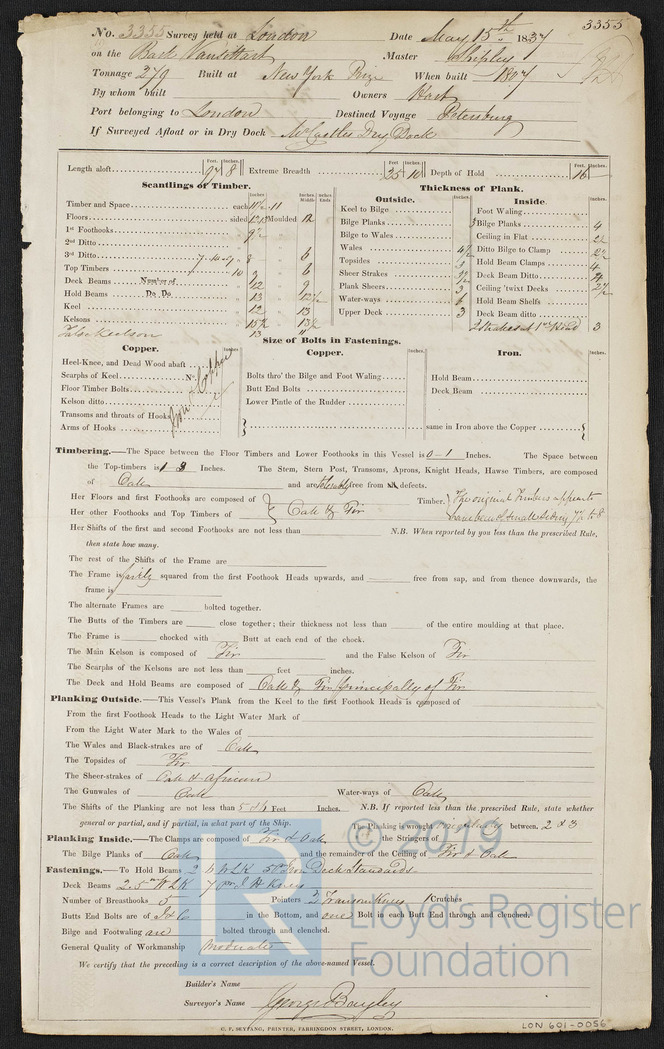 3355
No. 3355 Survey held at London Date May 15th 1837
on the Bark Vansittart Master Shipley
Tonnage 279 Built at New York Prize When built 1807
By whom built Owners Hart
Port belonging to London Destined Voyage Petersburg
If Surveyed Afloat or in Dry Dock Dry Dock
Feet. Inches. Feet Inches. Feet. Inches.
Length aloft 97 8 Extreme Breadth 25 10 Depth of Hold 16
Scantlings of Timber. Thickness of Plank.
Outside. Inside.
Timber and Space each
Floors sided Moulded 12
1st Foothooks 9½
2nd Ditto
3rd Ditto 8 6
Top Timbers 9 6
Deck Beams Number of 12 9
Hold Beams Do. Do 13 12½
Keel 12 13
Kelsons 15½ 13½
False Keelson 13 11
Keel to Bilge
Bilge Planks 3
Bilge to Wales
Wales 4½
Topsides 3
Sheer Strakes
Plank Sheers 3
Water-ways 6
Upper Deck 3
Foot Waling
Bilge Planks 4
Ceiling in Flat 2½
Ditto Bilge to Clamp 2½
Hold Beam Clamps 4
Deck Beam Ditto 4
Ceiling 'twixt Decks 2½
Hold Beam Shelfs
Deck Beam ditto
3
Size of Bolts in Fastenings.
Copper. Copper. Iron.
Heel-Knee, and Dead Wood abaft
Scarphs of Keel No.
Floor Timber Bolts
Kelson ditto
Transoms and throats of Hooks
Arms of Hooks
Iron & Copper
Bolts thro' the Bilge and Foot Waling
Butt End Bolts
Lower Pintle of the Rudder
Hold Beam
Deck Beam
same in Iron above the Copper
Timbering.—The Space between the Floor Timbers and Lower Foothooks in this Vessel is 0-1 Inches. The Space between
the Top-timbers is 1-3 Inches. The Stem, Stern Post, Transoms, Aprons, Knight Heads, Hawse Timbers, are composed
of Oak and are tolerably free from all defects.
Her Floors and first Foothooks are composed of
Her other Foothooks and Top Timbers of Oak & Fir Timber. The original Timbers appear to
Her Shifts of the first and second Foothooks are not less than N.B. When reported by you less than the prescribed Rule,
then state how many.
The rest of the Shifts of the Frame are
The Frame is fairly squared from the first Foothook Heads upwards, and free from sap, and from thence downwards, the
frame is
The alternate Frames are bolted together.
The Butts of the Timbers are close together; their thickness not less than of the entire moulding at that place.
The Frame is chocked with Butt at each end of the chock.
The Main Kelson is composed of Fir and the False Kelson of Fir
The Scarphs of the Kelsons are not less than feet inches.
The Deck and Hold Beams are composed of Oak & Fir principally of Fir
Planking Outside.—This Vessel's Plank from the Keel to the first Foothook Heads is composed of
From the first Foothook Heads to the Light Water Mark of
From the Light Water Mark to the Wales of
The Wales and Black-strakes are of Oak
The Topsides of Fir
The Sheer-strakes of Oak & African
The Gunwales of Oak Water-ways of Oak
The Shifts of the Planking are not less than 5 & 4 Feet Inches. N.B. If reported less than the prescribed Rule, state whether
general or partial, and if partial, in what part of the Ship. The Planking is wrought irregularly between 2 & 3
Planking Inside.—The Clamps are composed of Fir & Oak the Stringers of
The Bilge Planks of Oak and the remainder of the Ceiling of Fir & Oak
Fastenings.—To Hold Beams Iron Deck Standards
Deck Beams Knees
Number of Breasthooks 5 Pointers Transom Knees Crutches
Butts End Bolts are of I & C in the Bottom, and one Bolt in each Butt End through and clenched.
Bilge and Footwaling are bolted through and clenched.
General Quality of Workmanship Moderate
We certify that the preceding is a correct description of the above-named Vessel.
Builder's Name
Surveyor's Name George Bayley
C. F. SEYFANG, PRINTER, FARRINGDON STREET, LONDON.
LON 601-0056
LR © 2019
Lloyd's Register
Foundation